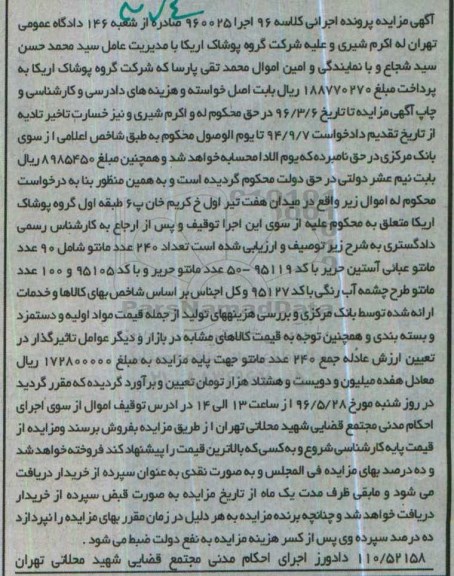 ۲۷۴
آگهی مزایده پرونده اجرائی کلاسه ۹۶ اجرا ۹۶۰۰۲۵ صادره از شعبه ۱۴۶ دادگاه عمومی
تهران له اکرم شیری و علیه شرکت گروه پوشاک اریکا با مدیریت عامل سید محمد حسن
سید شجاع و با نمایندگی و امین اموال محمد تقی پارسا که شرکت گروه پوشاک اریکا به
پرداخت مبلغ ۱۸۸۷۷۰۲۷۰ ریال بابت اصل خواسته و هزینه های دادرسی و کارشناسی و
چاپ آگهی مزایده تا تاریخ ۹۶/۳/۶ در حق محکوم له و اکرم شیری و نیز خسارت تاخیر تادیه
از تاریخ تقدیم دادخواست ۹۴/۹/۷ تا یوم الوصول محکوم به طبق شاخص اعلامی از سوی
بانک مرکزی در حق نامبرده که یوم الادا محسابه خواهد شد و همچنین مبلغ ۸۹۸۵۴۵۰ ریال
بابت نیم عشر دولتی در حق دولت محکوم گردیده است و به همین منظور بنا به درخواست
محکوم له اموال زیر واقع در میدان هفت تیر اول خ کریم خان پ۶ طبقه اول گروه پوشاک
اریکا متعلق به محکوم علیه از سوی این اجرا توقیف و پس از ارجاع به کارشناس رسمی
دادگستری به شرح زیر توصیف و ارزیابی شده است تعداد ۲۴۰ عدد مانتو شامل ۹۰ عدد
مانتو عبائی آستین حریر با کد ۹۵۱۱۹ -۵۰ عدد مانتو حریر و با کد ۹۵۱۰۵ و ۱۰۰ عدد
مانتو طرح چشمه آب رنگی با کد ۹۵۱۲۷ و کل اجناس بر اساس شاخص بهای کالاها و خدمات
ارائه شده توسط بانک مرکزی و بررسی هزینههای تولید از جمله قیمت مواد اولیه و دستمزد
و بسته بندی و همچنین توجه به قیمت کالاهای مشابه در بازار و دیگر عوامل تاثیرگذار در
تعیین ارزش عادله جمع ۲۴۰ عدد مانتو جهت پایه مزایده به مبلغ ۱۷۲۸۰۰۰۰۰ ریال
معادل هفده میلیون و دویست و هشتاد هزار تومان تعیین و برآورد گردیده که مقرر گردید
در روز شنبه مورخ ۹۶/۵/۲۸ از ساعت ۱۳ الی ۱۴ در ادرس توقیف اموال از سوی اجرای
احکام مدنی مجتمع قضایی شهید محلاتی تهران از طریق مزایده بفروش برسند ومزایده از
قیمت پایه کارشناسی شروع و به کسی که بالاترین قیمت را پیشنهاد کند فروخته خواهد شد
و ده درصد بهای مزایده فی المجلس و به صورت نقدی به عنوان سپرده از خریدار دریافت
می شود و مابقی ظرف مدت یک ماه از تاریخ مزایده به صورت قبض سپرده از خریدار
دریافت خواهد شد و چنانچه برنده مزایده به هر دلیل در زمان مقرر بهای مزایده را نپردازد
ده درصد سپرده وی پس از کسر هزینه مزایده به نفع دولت ضبط می شود .
۱۱۰/۵۲۱۵۸ دادورز اجرای احکام مدنی مجتمع قضایی شهید محلاتی تهران